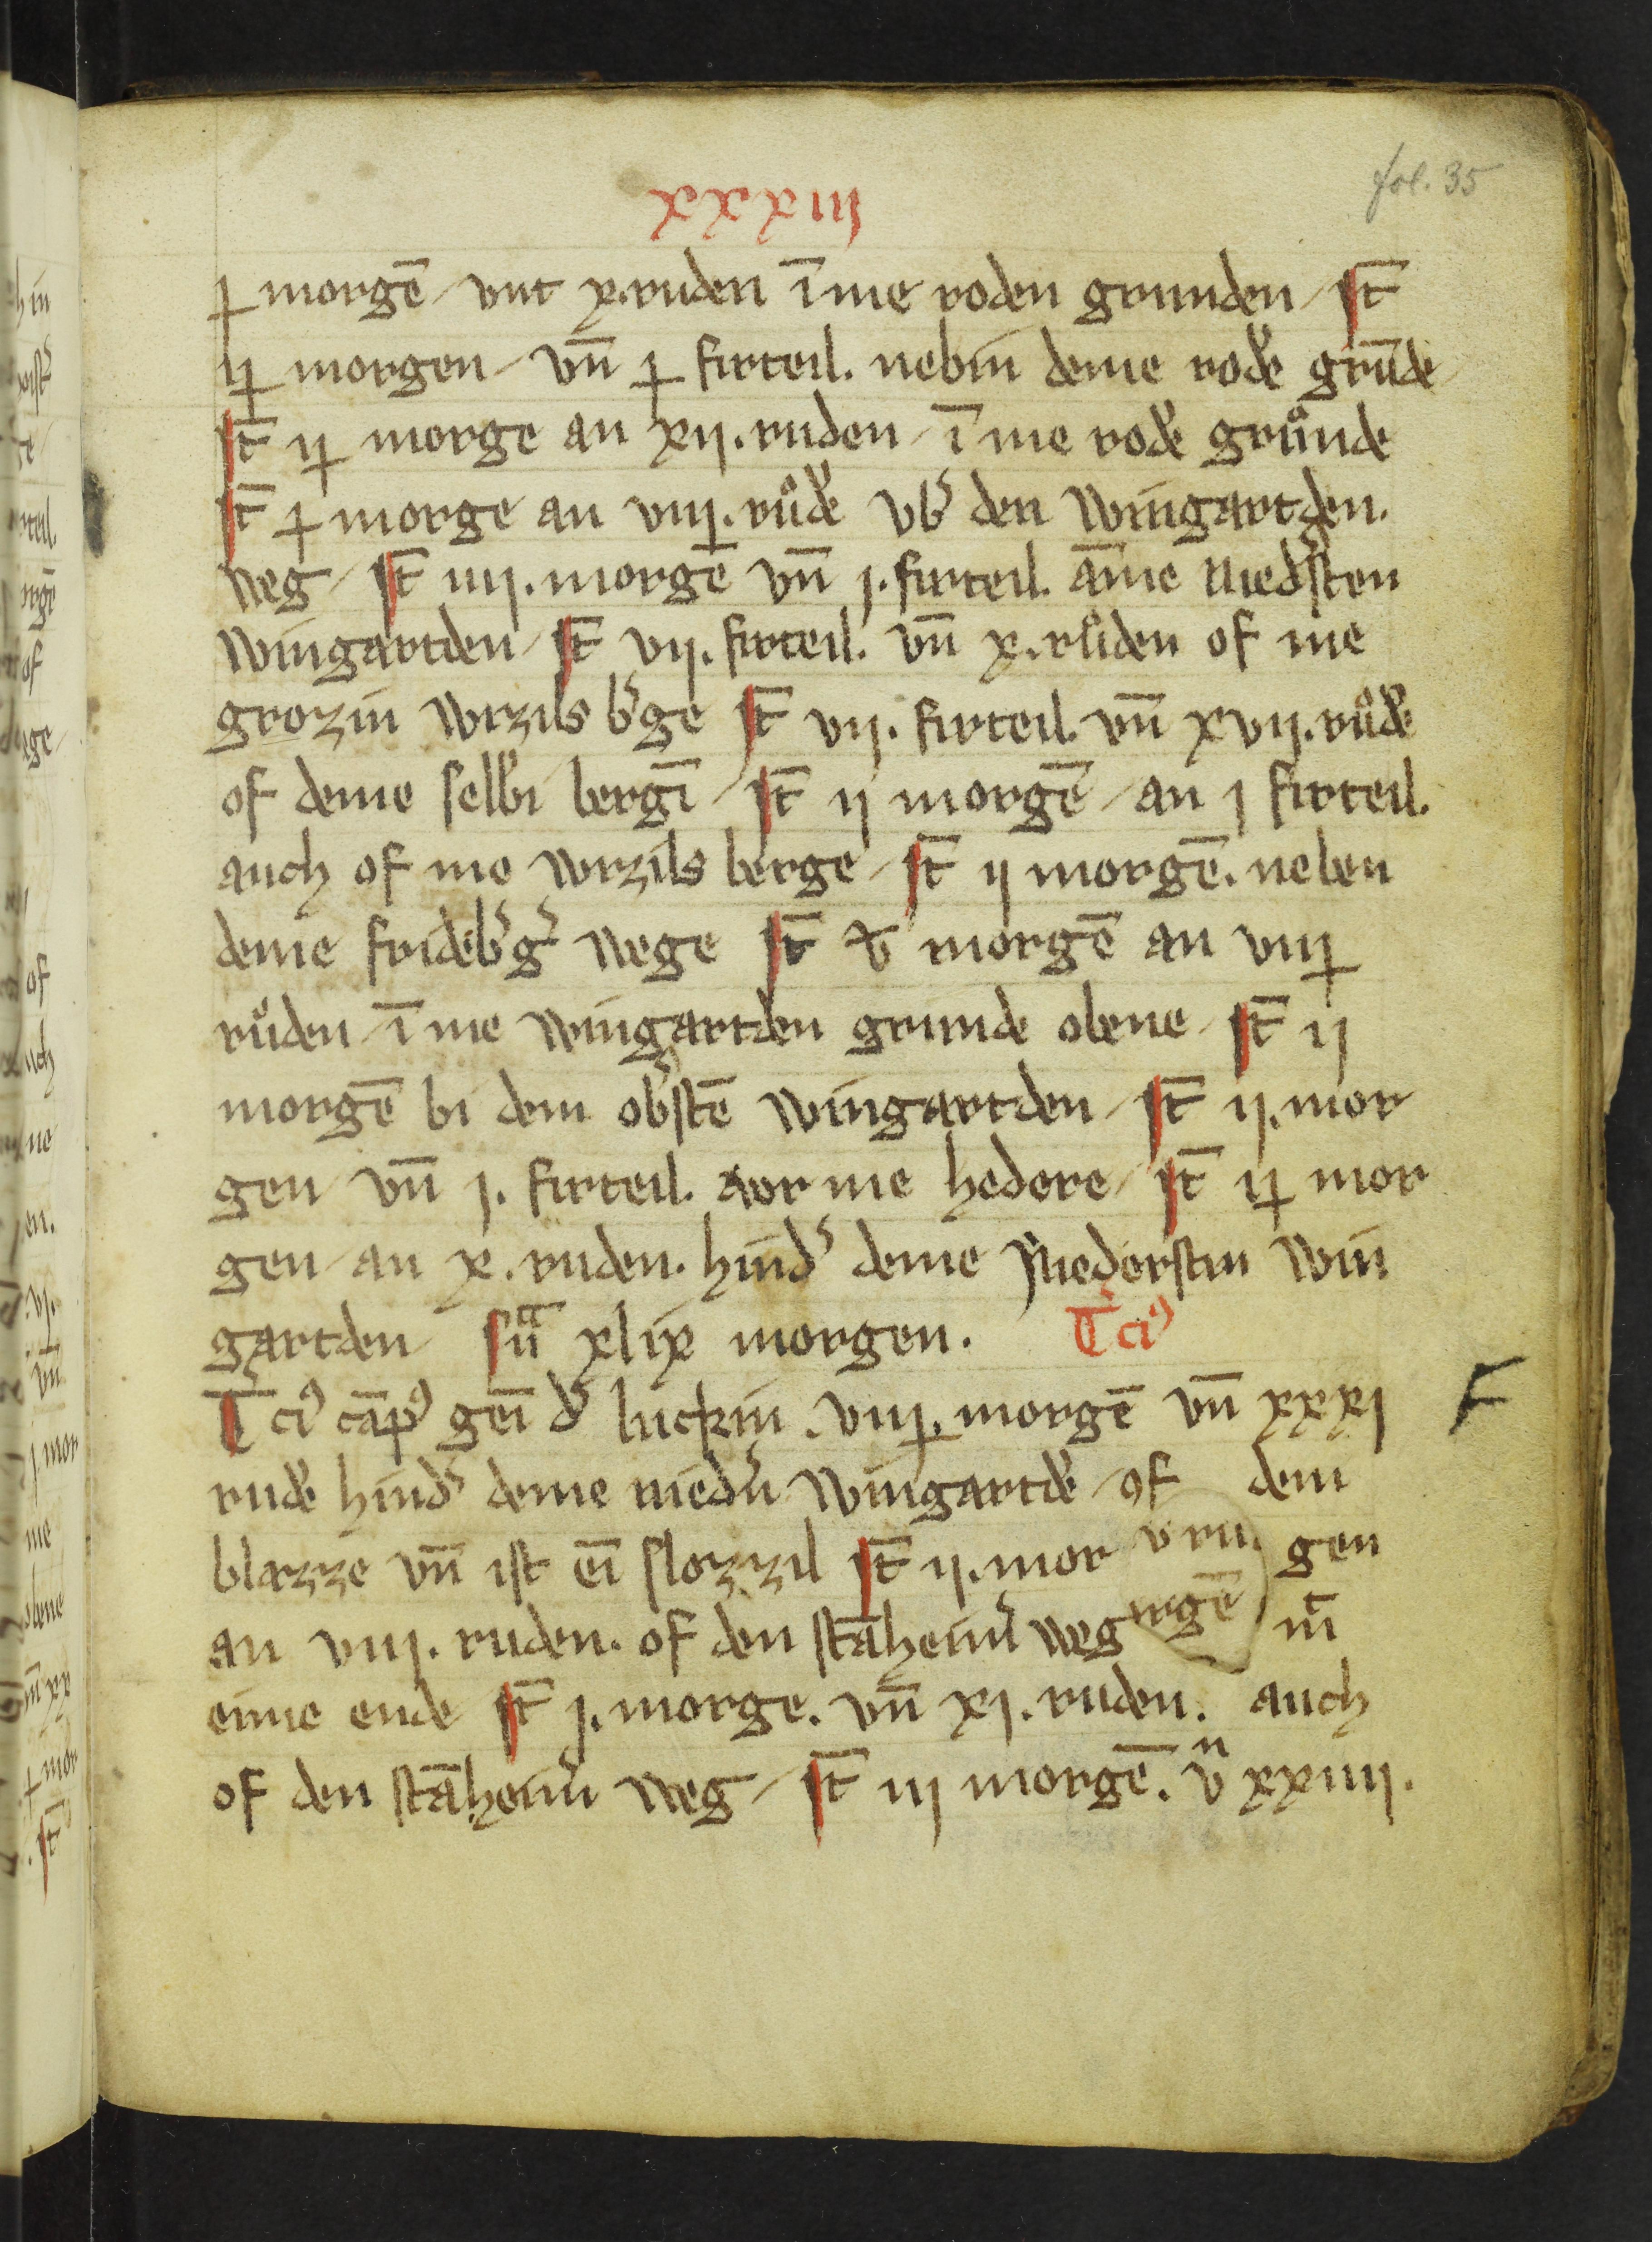 fol. 35
xxxiij
j morgē / vnt x. ruden ī me roden grunden / sт̄
ij morgen / vn̄ j firteil. nebin deme rodē grūde
sт̄ ij morge an xij. ruden / ī me rodē grůnde
sт̄ j morge an viij. růdē vb̾ den wingartden.
weg / sт̄ iiij. morgē vn̄ j. firteil. āme nied̾sten
wingartden / sт̄ vij. firteil. vn̄ x. růden of me
grozin wrzils b̾ge sт̄ vij. firteil. vn̄ xvij. růdē
of deme selb̾i bergī / sт̄ ij morgē / an j firteil.
auch of me wrzils berge / sт̄ ij morgē. neben
deme fridēb̾g̾ wege sт̄ v morgē an viij
růden / ī me wingartden grunde obene / sт̄ ij
morgē bi dem ob̾stē wingartden / sт̄ ij. mor
gen / vn̄ j. firteil. vor me hedere / sт̄ ij mor
gen / an x. ruden. hind̾ deme niederstin win
gartden / sūᵃ xlix morgen. T̄ciꝰ
T̄ciꝰ cāpꝰ geī d̾ luckin. viij. morgē vn̄ xxxj
F
rudē hind̾ deme nied̾n wingartdē / of dem
blazze vn̄ ist eī slozzil sт̄ ij. mor gen
v ru.
an viij. ruden. of den stāheim̾ weg m̄
rgē
eime ende sт̄ j. morge. vn̄ xj. ruden. auch
of den stāheim̾ weg / sт̄ iij morgē. vⁿ xxiiij.